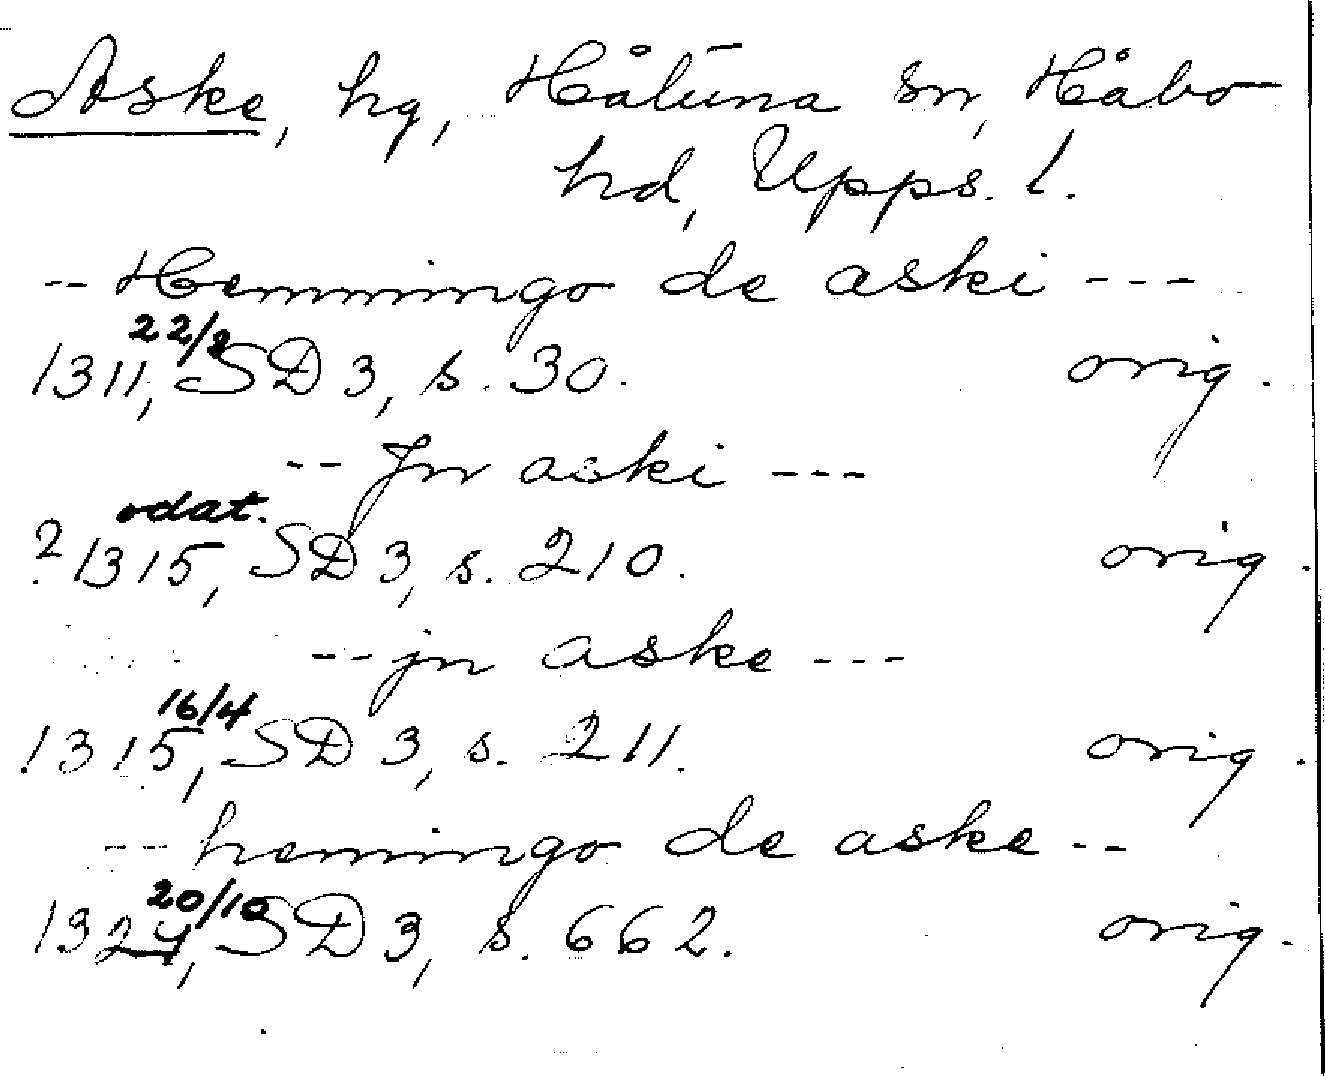 Aske, hg, Håtuna sn, Håbo
hd, Upps. l.
-- Hemmingo de aski ---
22/2
1311, SD 3, s. 30. orig.
-- Jn aski ---
odat.
? 1315, SD 3, s. 210. orig.
-- jn aske ---
16/4
1315, SD 3, s. 211. orig.
--- hemingo de aske --
20/10
1324, SD 3, s. 662. orig.